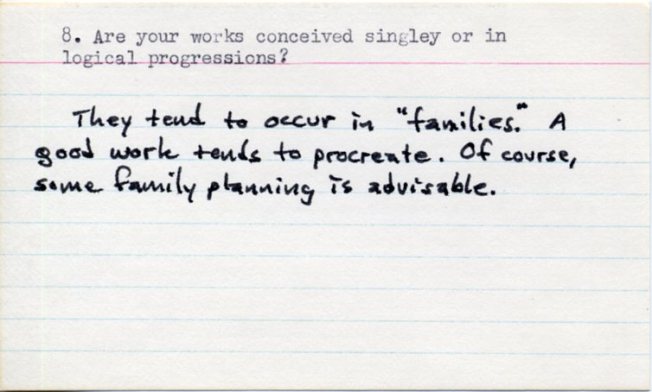 8. Are your works conceived singley or in
logical progressions?
They tend to occur in "families." A
good work tends to procreate. Of course,
some family planning is advisable.